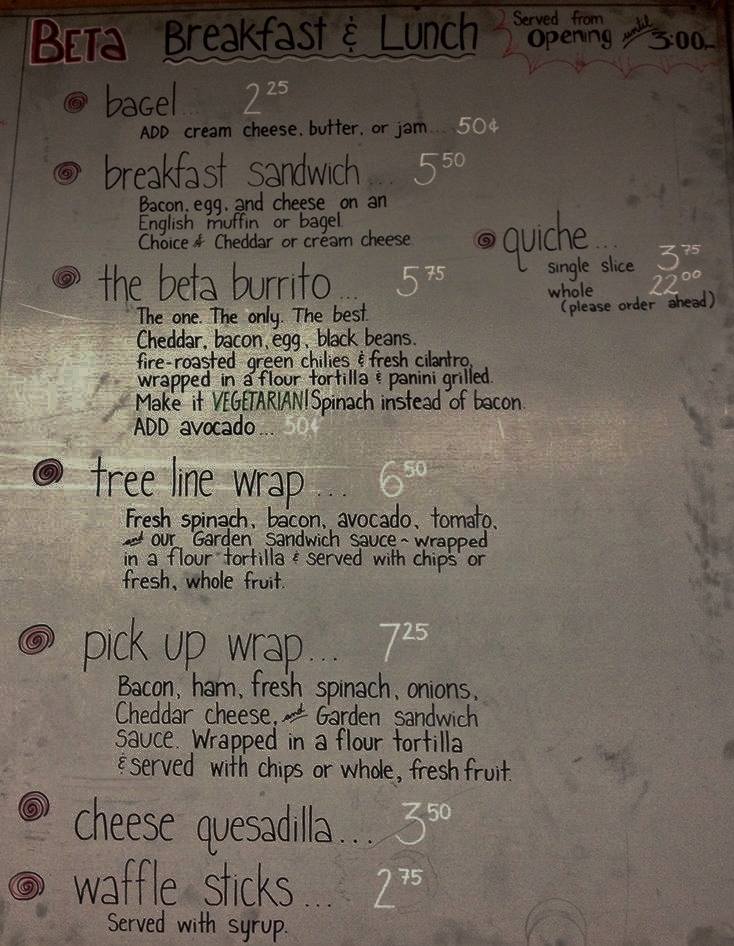 BETA Breakfast & Lunch
Served from
opening until 3:00
bagel... 2 25
ADD cream cheese, butter, or jam... 50¢
breakfast sandwich... 5 50
Bacon, egg, and cheese on an
English muffin or bagel.
Choice of Cheddar or cream cheese.
quiche...
single slice 3 75
whole 22 00
(please order ahead)
the beta burrito... 5 75
The one. The only. The best.
Cheddar, bacon, egg, black beans,
fire-roasted green chilies & fresh cilantro,
wrapped in a flour tortilla & panini grilled.
Make it VEGETARIAN! Spinach instead of bacon.
ADD avocado... 50¢
tree line wrap... 6 50
Fresh spinach, bacon, avocado, tomato,
and our Garden Sandwich sauce ~ wrapped
in a flour tortilla & served with chips or
fresh, whole fruit.
pick up wrap... 7 25
Bacon, ham, fresh spinach, onions,
Cheddar cheese, and Garden sandwich
sauce. Wrapped in a flour tortilla
& served with chips or whole, fresh fruit.
cheese quesadilla... 3 50
waffle sticks... 2 75
Served with syrup.